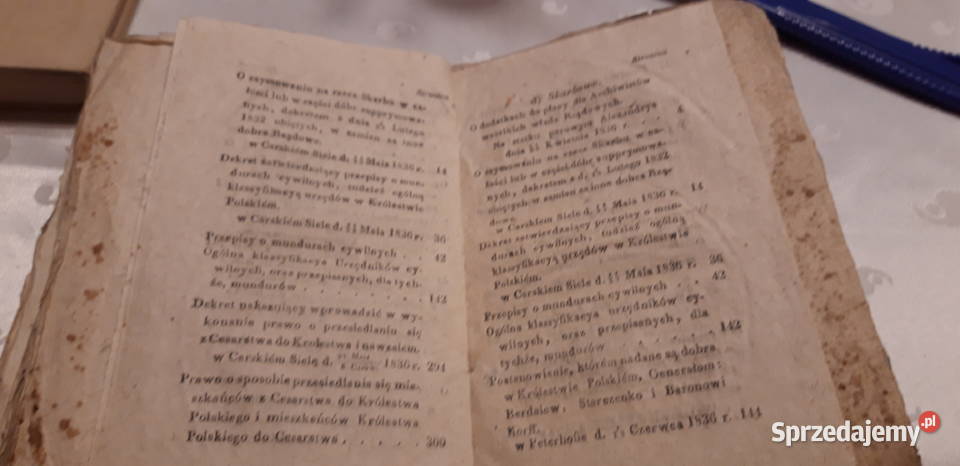 Stronica
O szymowaniu na rzecz Skarbu w ca-
łości lub w części dóbr supprymowa-
nych, dekretem z dnia Lutego
1832 objętych, w zamian za inne
dobra Rządowe.
w Carskiém Siele d. Maja 1836 r. 14
Dekret zatwierdzający przepisy o mun-
durach cywilnych, tudzież ogólną
klassyfikacyą urzędów w Królestwie
Polskiém.
w Carskiém Siele d. Maja 1836 r. 36
Przepisy o mundurach cywilnych . . 42
Ogólna klassyfikacya Urzędników cy-
wilnych, oraz przepisanych, dla tych-
że, mundurów . . . . . . . 142
Dekret nakazujący wprowadzić w wy-
konanie prawo o przesiedlaniu się
z Cesarstwa do Królestwa i nawzajem.
w Carskiém Siele d. 1836 r. 294
Prawo o sposobie przesiedlania się mie-
szkańców z Cesarstwa do Królestwa
Polskiego i mieszkańców Królestwa
Polskiego do Cesarstwa . . . . . 300
Stronica
d) Skarbowe.
O dodatkach do płacy dla Archiwistów
wszelkich władz Rządowych.
Na statku parowym Alexandrya
dnia Kwietnia 1836 r. . . . 4
O szymowaniu na rzecz Skarbu w ca-
łości lub w części dóbr supprymowa-
nych, dekretem z d. Lutego 1832
objętych w zamian za inne dobra Rzą-
dowe.
w Carskiém Siele d. Maja 1836 r. 14
Dekret zatwierdzający przepisy o mun-
durach cywilnych, tudzież ogólną
klassyfikacyą urzędów w Królestwie
Polskiém.
w Carskiém Siele d. Maja 1836 r. 36
Przepisy o mundurach cywilnych . . 42
Ogólna klassyfikacya urzędników cy-
wilnych, oraz przepisanych, dla
tychże, mundurów . . . . . . 142
Postanowienie, którém nadane są dobra
w Królestwie Polskiém, Generałom:
Berdaiew, Starszenko i Baronowi
Korff.
w Peterhofie d. Czerwca 1836 r. 144
Sprzedajemy.pl